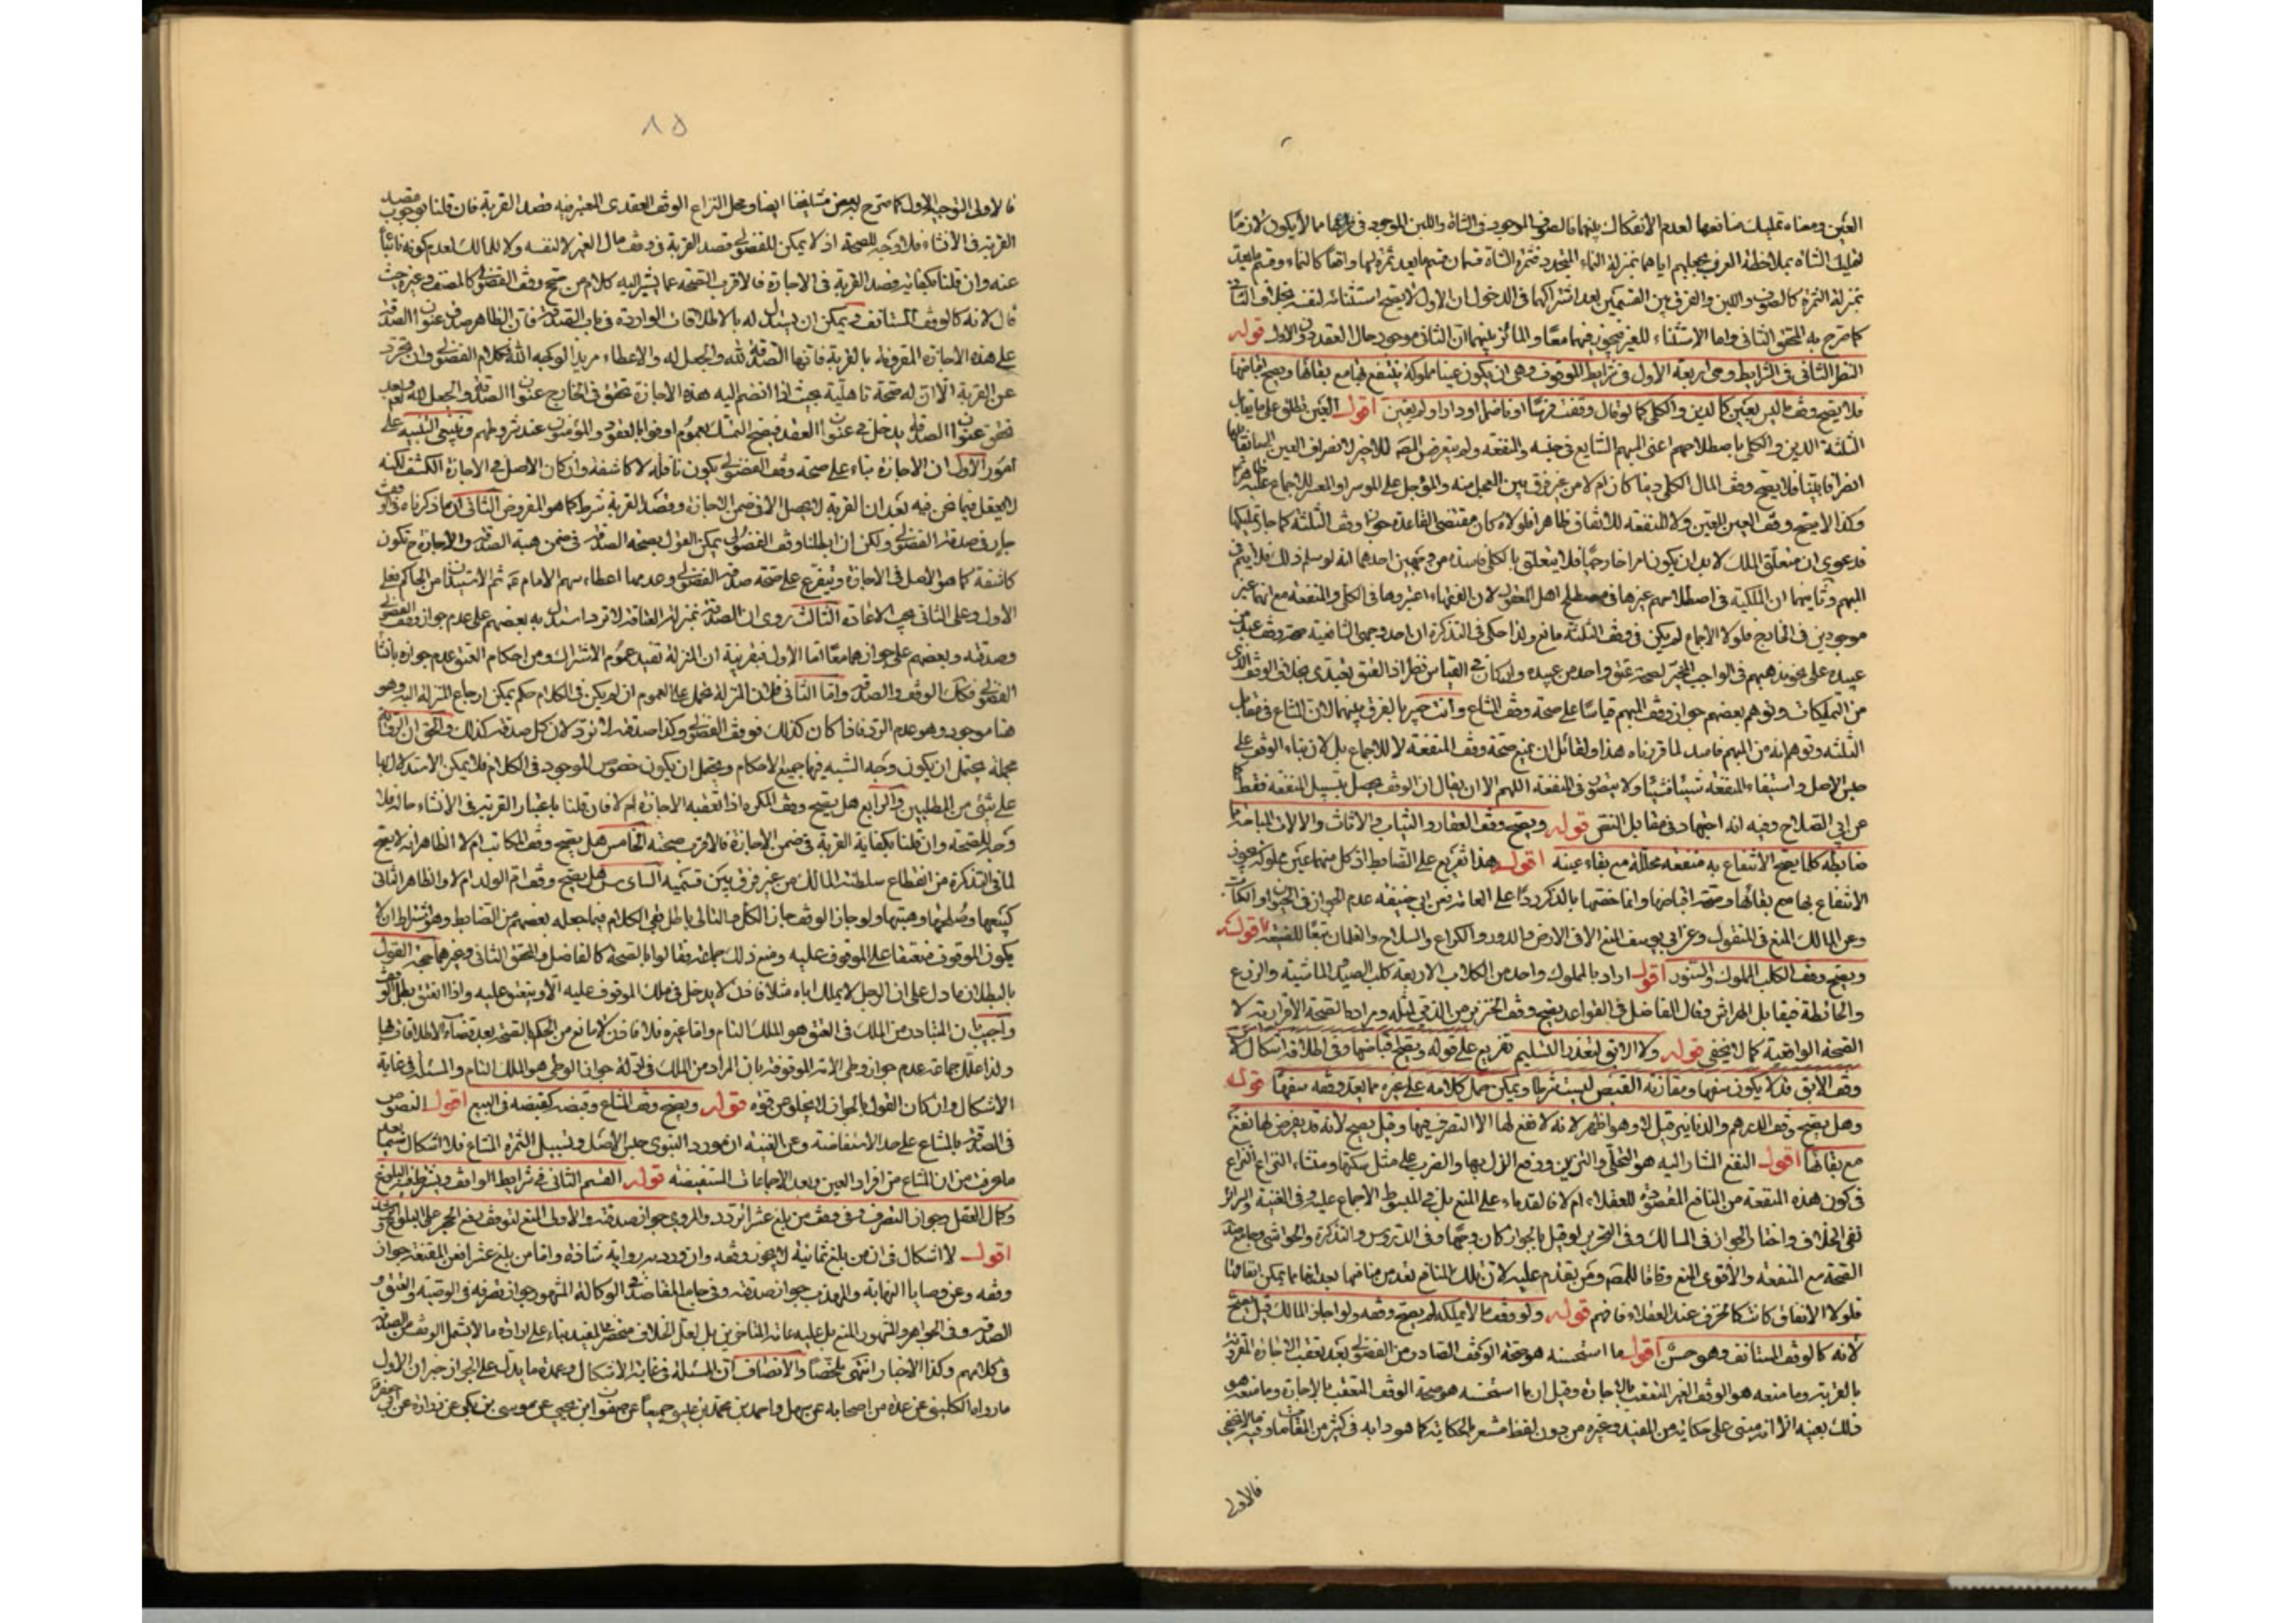 العين ومعناه تمليك منافعها لعدم الانفكاك بينهما فالصوف الموجود فى الشاة واللبن الموجود فى ضرعها مما لا يكون لازما
لتمليك الشاة بملاحظة العرف بجعلهم اياهما بمنزلة النماء المتجدد فثمرة الشاة قسمان قسم ما يعد ثمرة لها واقعا كالنماء وقسم ما يعد
بمنزلة الثمرة كالصوف واللبن والفرق بين القسمين بعد اشتراكهما فى الدخول ان الاول لا يصح استثنائه لنفسه بخلاف الثانى
كما صرح به المحقق الثانى واما الاستثناء للغير فيجوز فيهما معا والمائز بينهما ان الثانى موجود حال العقد دون الاول قوله
النظر الثانى فى الشرايط وهى اربعة الاول فى شرايط الموقوف وهى ان يكون عينا مملوكة ينتفع بها مع بقائها ويصح اقباضها
فلا يصح وقف ما ليس بعين كالدين والكلى كما لو قال وقفت فرسا او ناضحا او دارا ولم يعين اقول العين تطلق على ما يقابل
الثلثة الدين والكلى باصطلاحهم اعنى المبهم الشايع فى جنسه والمنفعة ولم يتعرض المص للاخير لانصراف العين السابقة
انصرافا بينا فلا يصح وقف المال الكلى دينا كان ام لا من غير فرق بين المعجل منه والمؤجل على الموسر او المعسر للاجماع عليه ظاهرا
وكذا لا يصح وقف العين الغير المعين ولا المنفعة للاتفاق ظاهرا فلولاه كان مقتضى القاعدة جواز وقف الثلثة كما جاز تمليكها
فدعوى ان متعلق الملك لابد ان يكون امرا خارجيا فلا يتعلق بالكلى فاسدة من وجهين احدهما انه لو سلم ذلك فلا يتم فى
المبهم وثانيهما ان الملكية فى اصطلاحهم غيرها فى مصطلح اهل المعقول لان الفقهاء اعتبروها فى الكلى والمنفعة مع انهما غير
موجودين فى الخارج فلولا الاجماع لم يكن فى وقف الثلثة مانع ولذا حكى فى التذكرة ان احد وجهى الشافعية صحة وقف عبد من
عبيده على نحو مذهبهم فى الواجب المخير لصحة عتق واحد من عبيده وان كان فى القياس نظر اذ العتق بخلاف الوقف الذى
من التمليكات وتوهم بعضهم جواز وقف المبهم قياسا على صحة وقف المشاع وانت خبير بالفرق بينهما لان المشاع فى مقابل
الثلثة وتوهم انه من المبهم فاسد لما قررناه هذا ولقائل ان يمنع صحة وقف المنفعة لا للاجماع بل لان بناء الوقف على
حبس الاصل واستيفاء المنفعة شيئا فشيئا ولا يتصور فى المنفعة اللهم الا ان يقال ان الوقف يحصل بتسبيل المنفعة فقط كما
عن ابى الصلاح وفيه انه اجتهاد فى مقابل النص قوله ويصح وقف العقار والثياب والاثاث والالات المباحة
ضابطه كلما يصح الانتفاع به منفعة محللة مع بقاء عينه اقول هذا تفريع على الضابط اذ كل منهما عين مملوكة يجوز
الانتفاع بها مع بقائها وصحة اقباضها وانما خصها بالذكر ردا على العامة فعن ابى حنيفة عدم الجواز فى الحيوان او الكتاب
وعن المالك المنع فى المنقول وعن ابى يوسف المنع الا فى الارض والدور والكراع والسلاح والغلمان تبعا للضيعة قوله
ويصح وقف الكلب المملوك والسنور اقول اراد بالمملوك واحد من الكلاب الاربعة كلب الصيد والماشية والزرع
والحائط فيقابل الهراش وقال الفاضل فى القواعد يصح وقف الخنزير من الذمى لمثله ومراده الصحة الاقرارية لا
الصحة الواقعية كما لا يخفى قوله ولا الابق لتعذر التسليم تفريع على قوله ويصح اقباضها وفى اطلاقه اشكال لان
وقف الابق قد لا يكون سفها ومقارنة القبض ليست شرطا ويمكن حمل كلامه على غيره مما يعد وقفه سفها قوله
وهل يصح وقف الدرهم والدنانير قيل لا وهو اظهر لانه لا نفع لها الا التصرف فيها وقيل يصح لانه قد يفرض لها نفع
مع بقائها اقول النفع المشار اليه هو التحلى والتزيين ودفع الذل بها والضرب على مثل سكتها ومنشاء النزاع النزاع
فى كون هذه المنفعة من المنافع المقصودة للعقلاء ام لا فالقدماء على المنع بل فى المبسوط الاجماع عليه وفى الغنية والسرائر
نفى الخلاف واختار الجواز فى المسالك وفى التحرير لو قيل بالجواز كان وجها وفى الدروس والتذكرة والحواشى وجامع صد
الصحة مع المنفعة والاقوى المنع وفاقا للمص ومن تقدم عليه لان تلك المنافع تعد من منافعها بعد
فلولا الانفاق كانت كالخزف عند العقلاء فافهم قوله ولو وقف ما لا يملكه لم يصح وقفه ولو اجاز المالك قيل يصح
لانه كالوقف المستانف وهو حسن اقول ما استحسنه هو صحة الوقف الصادر من الفضولى بعد تعقب الاجازة المقرونة
بالقربة وما منعه هو الوقف الغير المتعقب بالاجازة وقيل ان ما استحسنه هو صحة الوقف المتعقب بالاجازة وما منعه هو
ذلك بعينه الا انه مبنى على حكاية من المفيد وغيره من دون لفظ مشعر بالحكاية كما هو دابه فى كثير من المقامات وفيه ما لا يخفى
فالاولى
٨٥
فالاولى التوجيه الاول كما صرح به بعض مشايخنا ايضا ومحل النزاع الوقف العقدى المعتبر فيه قصد القربة فان قلنا بوجوب قصد
القربة فى الانشاء فلا وجه للصحة اذ لا يمكن للفضولى قصد القربة فى وقف مال الغير لا لنفسه ولا للمالك لعدم كونه نائبا
عنه وان قلنا بكفاية قصد القربة فى الاجازة فالاقرب الصحة كما يشير اليه كلام من صحح وقف الفضولى كالمصنف وغيره حيث
قال لانه كالوقف المستانف ويمكن ان يستدل له بالاطلاقات الواردة فى باب الصدقة فان الظاهر صدق عنوان الصدقة
على هذه الاجازة المقرونة بالقربة فانها الصدقة لله والجعل له والاعطاء مريدا لوجه الله فكلام الفضولى وان تجرد
عن القربة الا ان له صحة تاهلية بحيث اذا انضم اليه هذه الاجازة تحقق فى الخارج عنوان الصدقة والجعل لله وبعد
تحقق عنوان الصدقة يدخل فى عنوان العقد فيصح التمسك بعموم اوفوا بالعقود والمؤمنون عند شروطهم وينبغى التنبيه على
امور الاول ان الاجازة بناء على صحة وقف الفضولى يكون ناقلة لا كاشفة وان كان الاصل فى الاجازة الكشف لكنه
لا يعقل فيما نحن فيه بعد ان القربة لا يحصل الا فى ضمن الاجازة وقصد القربة شرط كما هو المفروض الثانى ان ما ذكرناه فى الوقف
جار فى صدقة الفضولى ولكن ان ابطلنا وقف الفضولى يمكن القول بصحة الصدقة فى ضمن هبة الصدقة والاجازة ح تكون
كاشفة كما هو الاصل فى الاجازة ويتفرع على صحة صدقة الفضولى وعدمها اعطاء سهم الامام عه ثم الاستيذان من الحاكم فعلى
الاول وعلى الثانى يجب الاعادة الثالث روى ان الصدقة بمنزلة العتاقة لا ترد استدل به بعضهم على عدم جواز وقف الفضولى
وصدقته وبعضهم على جوازهما معا اما الاول فبقرينة ان المنزلة تفيد عموم الاشتراك ومن احكام العتق عدم جوازه بانشاء
الفضولى فكك الوقف والصدقة واما الثانى فلان المنزلة تحمل على العموم ان لم يكن فى الكلام حكم يمكن ارجاع المنزلة اليه وهو
هنا موجود وهو عدم الرد فاذا كان كذلك فوقف الفضولى وكذا صدقته لا ترد لان كل صدقة كذلك والحق ان الرواية
مجملة يحتمل ان يكون وجه الشبه فيها جميع الاحكام ويحتمل ان يكون خصوص الموجود فى الكلام فلا يمكن الاستدلال بها
على شئ من المطلبين والرابع هل يصح وقف المكره اذا تعقبه الاجازة ام لا فان قلنا باعتبار القربة فى الانشاء حاله فلا
وجه للصحة وان قلنا بكفاية القربة فى ضمن الاجازة فالاقرب صحته الخامس هل يصح وقف المكاتب ام لا الظاهر انه لا يصح
لما فى التذكرة من انقطاع سلطنة المالك من غير فرق بين قسميه السادس هل يصح وقف ام الولد ام لا والظاهر الثانى
كبيعها وصلحها وهبتها ولو جاز الوقف جاز الكل والتالى باطل بقى الكلام فيما جعله بعضهم من الضابط وهو اشتراط ان لا
يكون الموقوف منعتقا على الموقوف عليه ومنع ذلك جماعة فقالوا بالصحة كالفاضل والمحقق الثانى وغيرهما حجة القول
بالبطلان ما دل على ان الرجل لا يملك اباه مثلا فاذن لا يدخل فى ملك الموقوف عليه الا وينعتق عليه واذا انعتق بطل الوقف
واجيب بان المتبادر من الملك فى العتق هو الملك التام واما غيره فلا فاذن لا مانع من الحكم بالصحة بعد قضاء الاطلاقات بها
ولذا علل جماعة عدم جواز وطى الامة الموقوفة بان المراد من الملك فى ادلة جواز الوطى هو الملك التام والمسئلة فى غاية
الاشكال وان كان القول بالجواز لا يخلو من قوة قوله ويصح وقف المشاع وقبضه كقبضه فى البيع اقول النصوص
فى الصدقة بالمشاع على حد الاستفاضة وعن الغنية ان مورد النبوى حبس الاصل وتسبيل الثمرة المشاع فلا اشكال سيما بعد
ما عرفت من ان المشاع من افراد العين وبعد الاجماعات المستفيضة قوله القسم الثانى فى شرايط الواقف ويشترط فيه البلوغ
وكمال العقل وجواز التصرف وفى وقف من بلغ عشرا تردد والمروى جواز صدقته والاولى المنع لتوقف رفع الحجر على البلوغ والرشد
اقول لا اشكال فى ان من بلغ ثمانية لا يجوز وقفه وان ورد به رواية شاذة واما من بلغ عشرا فعن المقنعة جواز
وقفه وعن وصايا النهاية والمهذب جواز صدقته وفى جامع المقاصد فى الوكالة المشهور جواز تصرفه فى الوصية والعتق و
الصدقة وفى الجواهر والمشهور المنع بل عليه عامة المتاخرين بل لعل الخلاف منحصر بالمفيد بناء على ارادة ما لا يشمل الوقف من الصدقة
فى كلامهم وكذا الاخبار انتهى ملخصا والانصاف ان المسئلة فى غاية الاشكال وعمدة ما يدل على الجواز خبران الاول
ما رواه الكلينى عن عدة من اصحابه عن سهل واحمد بن محمد بن جميعا عن صفوان بن يحيى عن موسى بن بكر عن زرارة عن ابى جعفر